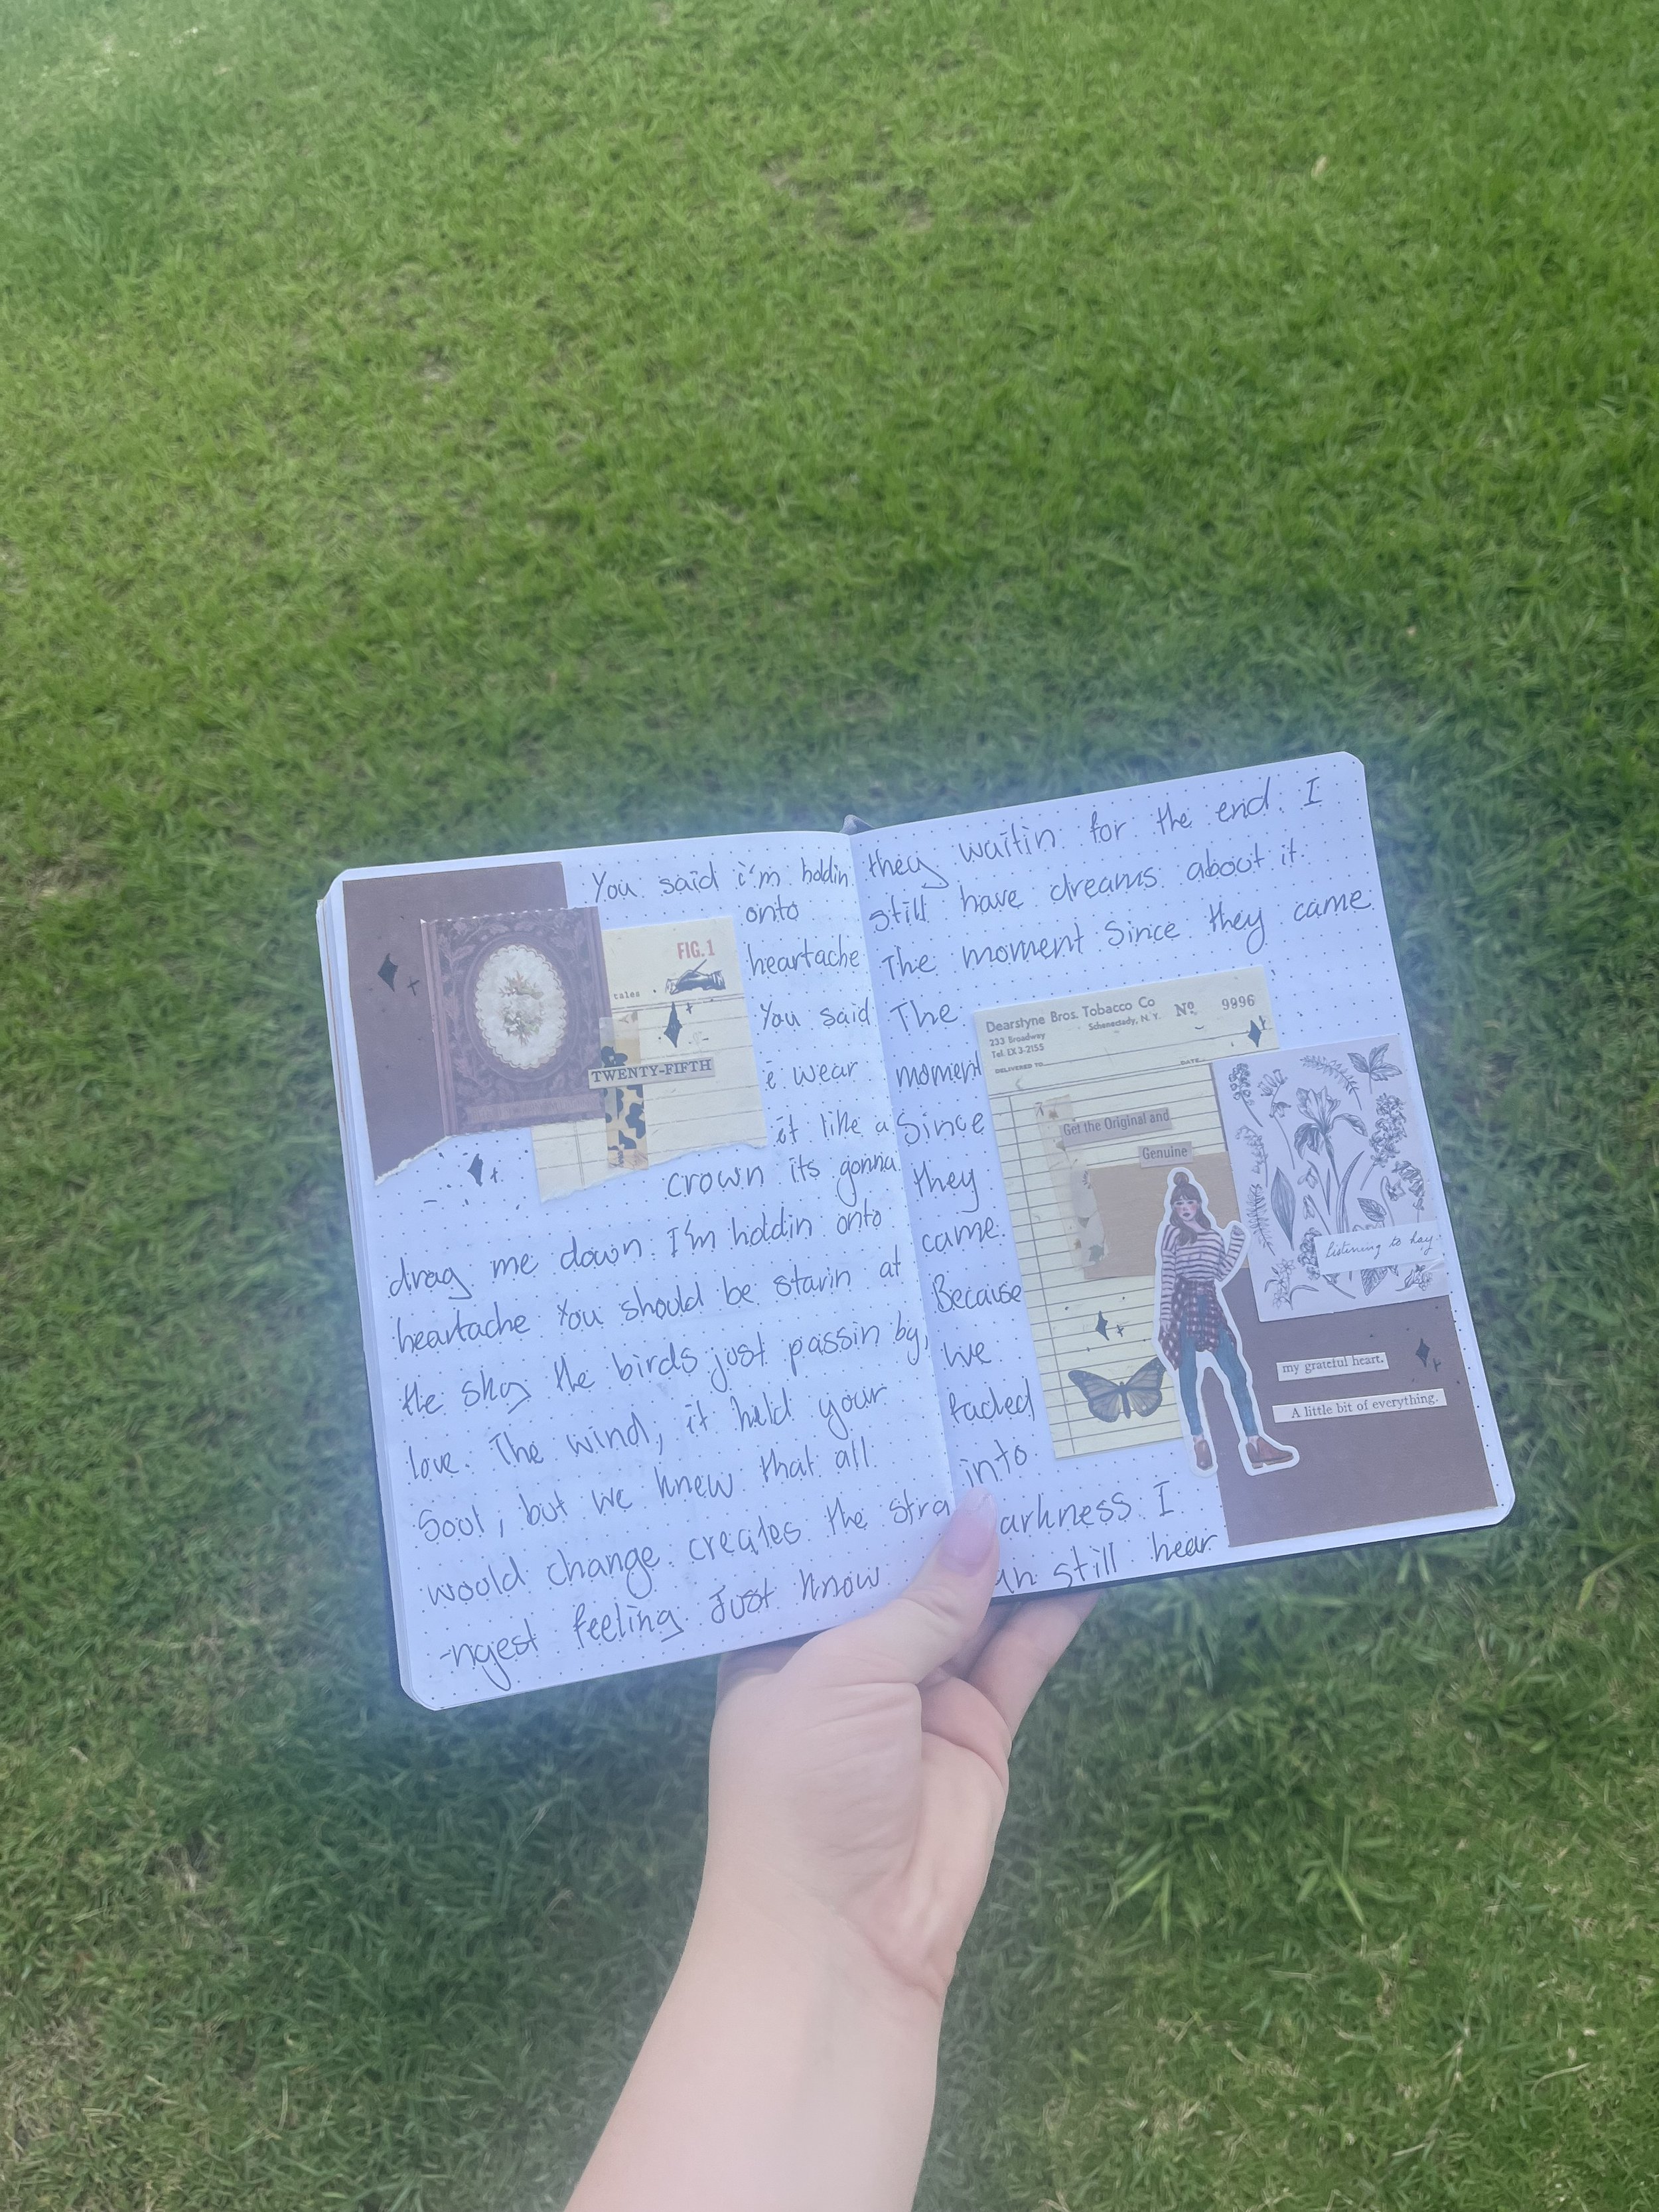 You said i'm holdin
onto
heartache
You said
e wear
it like a
crown its gonna
drag me down. I'm holdin onto
heartache You should be starin at
the sky the birds just passin by,
love. The wind, it held your
Soul, but we knew that all
would change creates the stra
-ngest feeling Just know
FIG. 1
tales
TWENTY-FIFTH
they waitin for the end. I
still have dreams about it.
The moment Since they came
The
moment
Since
they
came.
Because
we
faded
into
arkness I
an still hear
Dearstyne Bros. Tobacco Co
233 Broadway
Schenectady, N. Y.
Tel. EX 3-2155
No 9896
DELIVERED TO
DATE
Get the Original and
Genuine
listening to day
my grateful heart.
A little bit of everything.